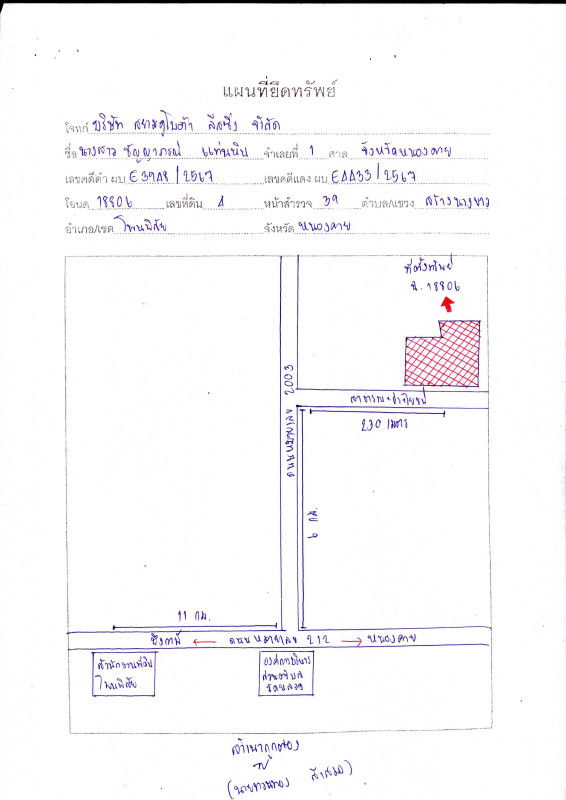 แผนที่ยึดทรัพย์
โจทก์ บริษัท สยามคูโบต้า ลีสซิ่ง จำกัด
ชื่อ นางสาว ชัญญาภรณ์ แท่นหิน จำเลยที่ 1 ศาล จังหวัดหนองคาย
เลขคดีดำ ผบ E3948/2567 เลขคดีแดง ผบ E4433/2567
โฉนด 18806 เลขที่ดิน 4 หน้าสำรวจ 39 ตำบล/แขวง สร้างนางขาว
อำเภอ/เขต โพนพิสัย จังหวัด หนองคาย
ที่ตั้งทรัพย์
ฉ. 18806
สาธารณะประโยชน์
230 เมตร
ถนนหมายเลข 2003
6 กม.
11 กม.
บึงกาฬ ← ถนนหมายเลข 212 → หนองคาย
สำนักงานที่ดิน
โพนพิสัย
องค์การบริหาร
ส่วนตำบล
สำเนาถูกต้อง